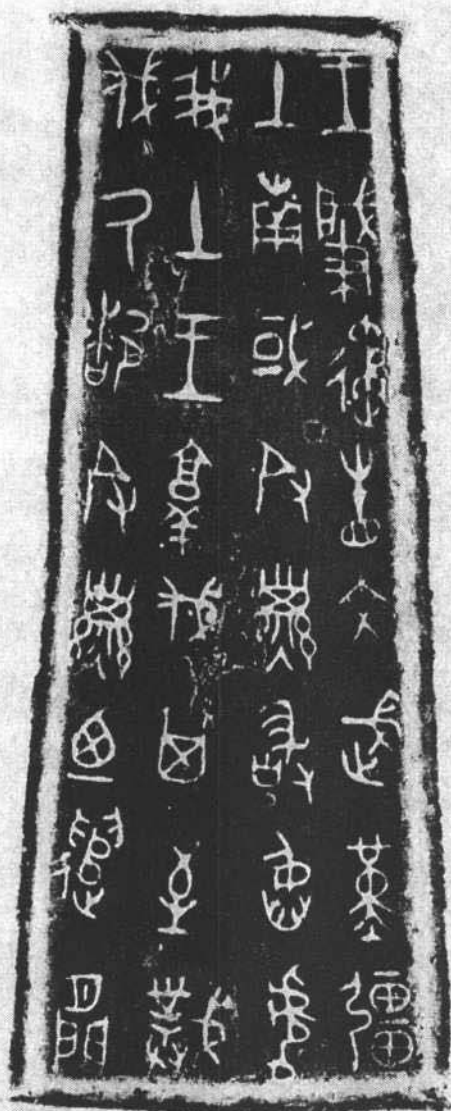 王肈遹眚文武堇彊
土南或𠬝孳敢臽虐
我土王𦎫伐其至𢦚
伐氒都𠬝孳廼遣閒